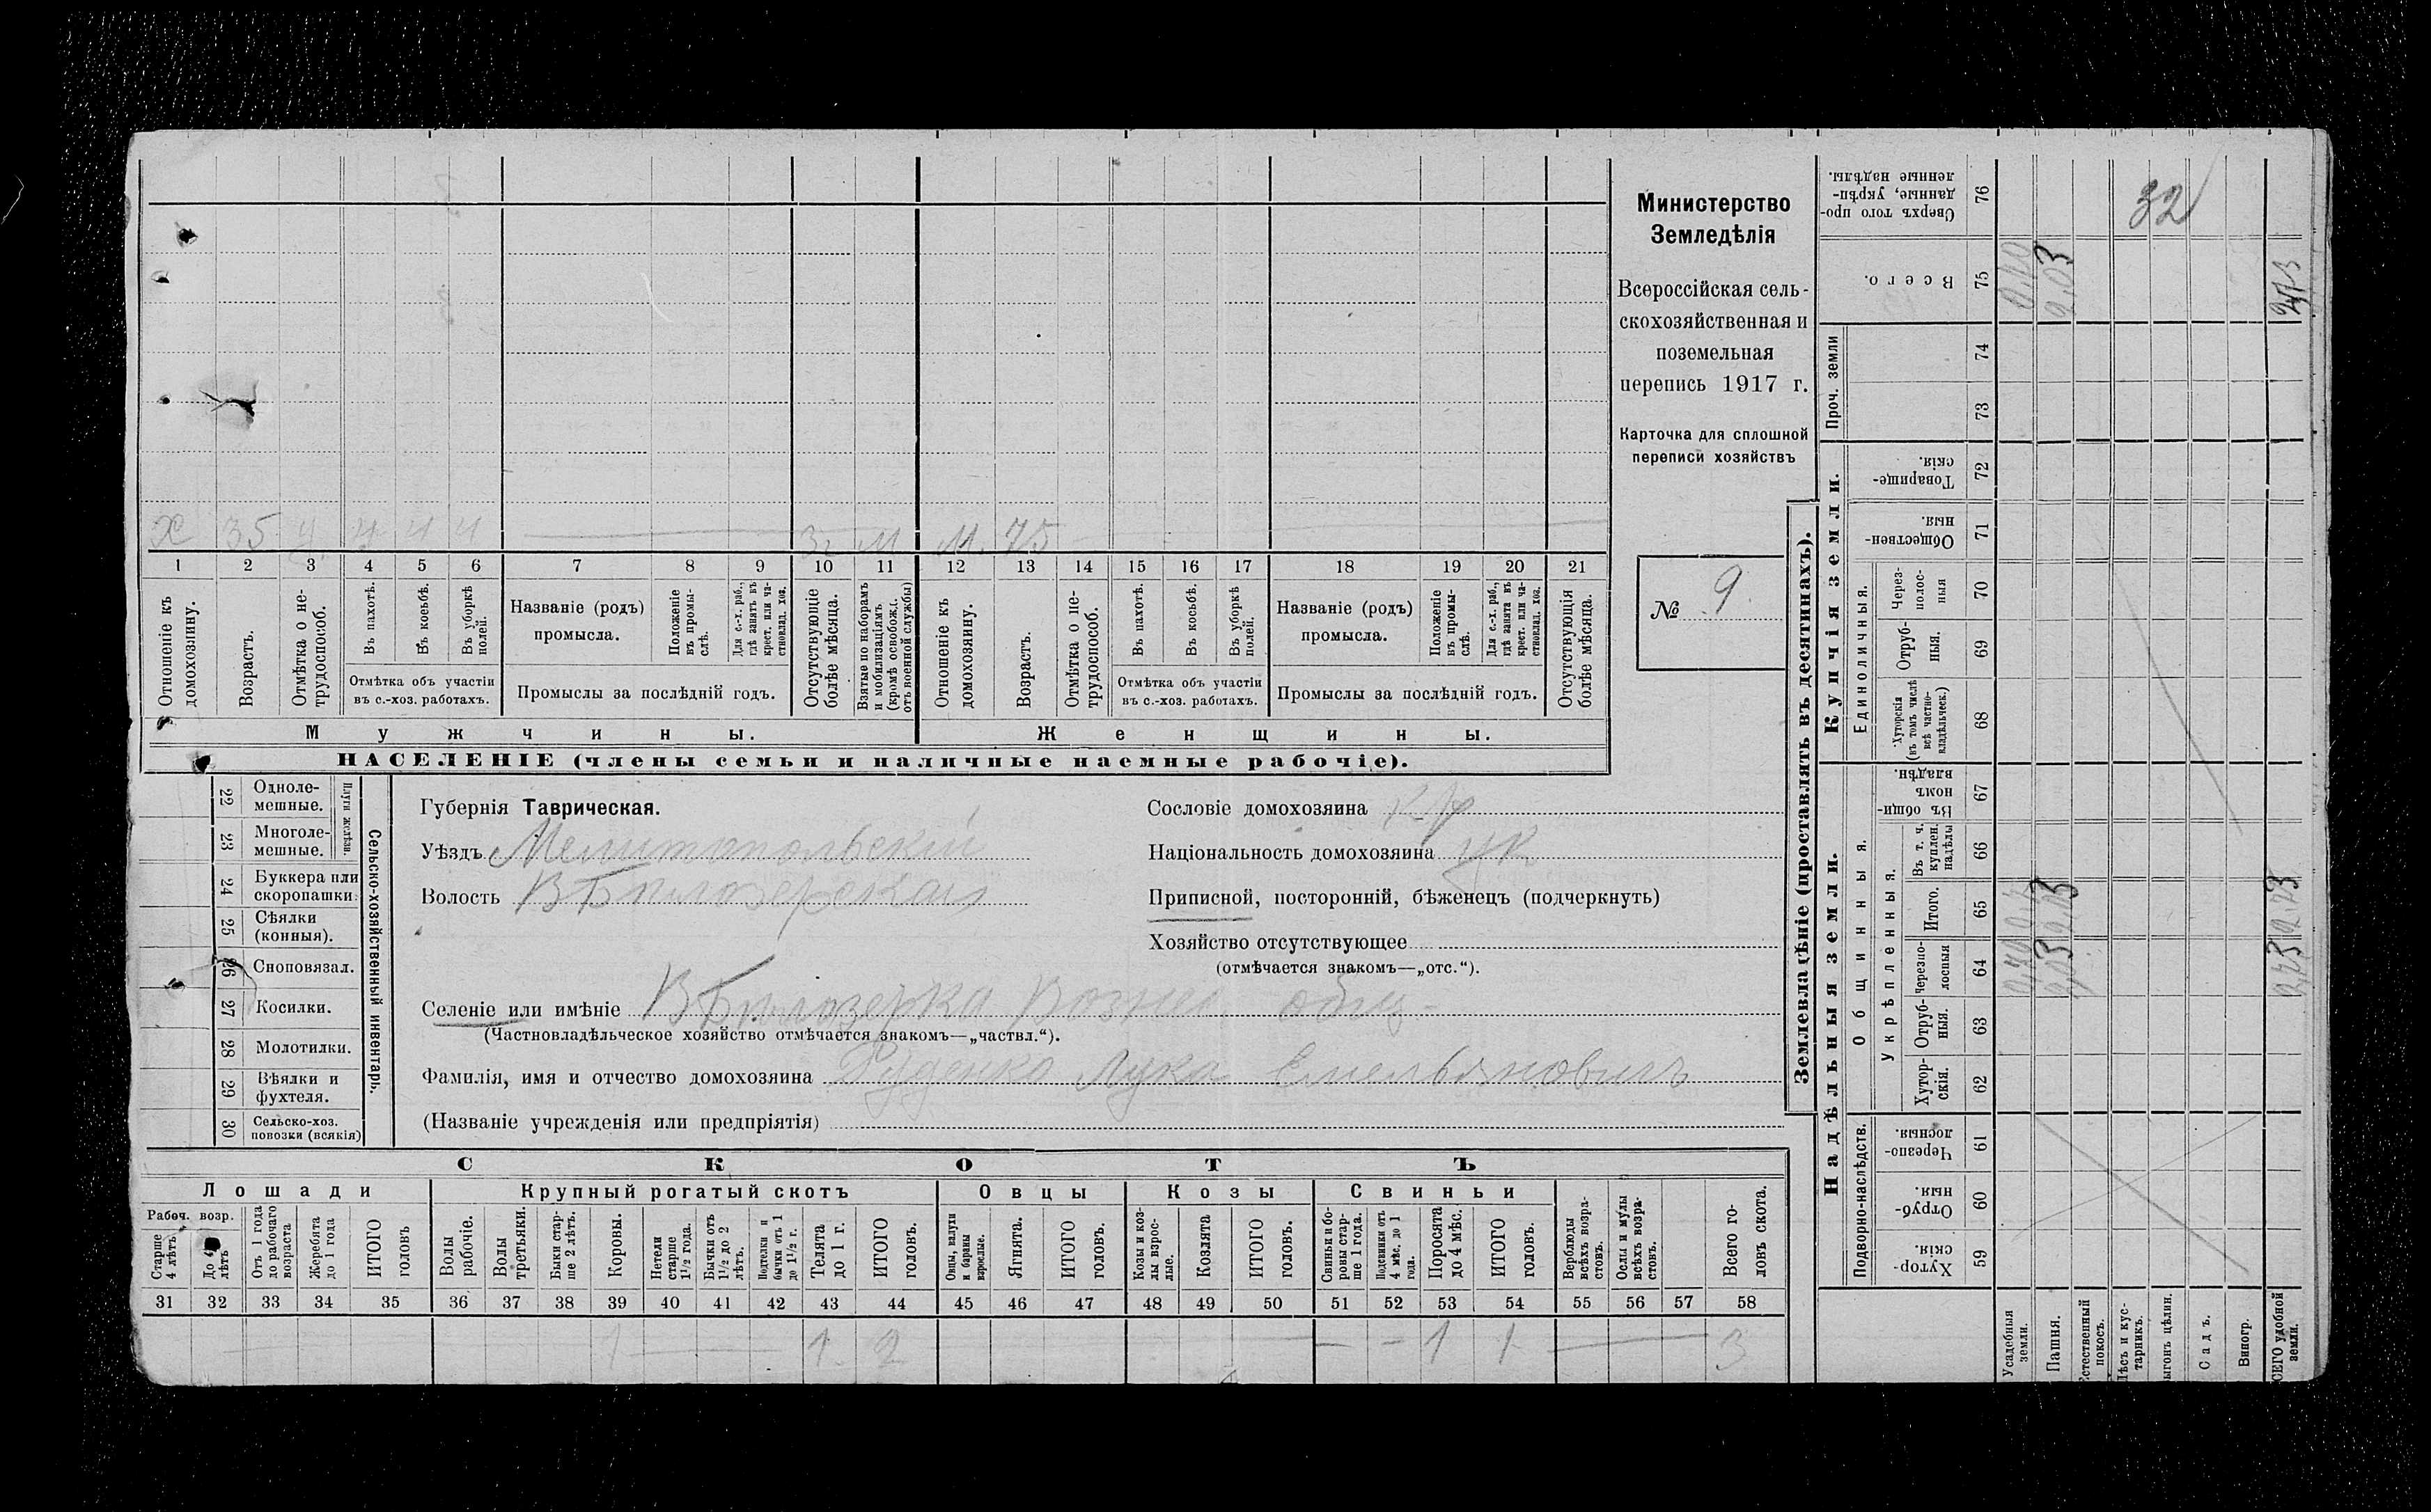 Министерство
Земледѣлія
Всероссійская сель-
скохозяйственная и
поземельная
перепись 1917 г.
Карточка для сплошной
переписи хозяйствъ
№ 9
Х 35 ч ч ч ч 3г М М. 75
1 2 3 4 5 6 7 8 9 10 11 12 13 14 15 16 17 18 19 20 21
Отношеніе къ домохозяину.
Возрастъ.
Отмѣтка о не-трудоспособ.
Въ пахотѣ.
Въ косьбѣ.
Въ уборкѣ полей.
Отмѣтка объ участіи
въ с.-хоз. работахъ.
Названіе (родъ)
промысла.
Положеніе въ промы-слѣ.
Для с.-х. раб., гдѣ занятъ въ крест. или ча-стновлад. хоз.
Промыслы за послѣдній годъ.
Отсутствующіе болѣе мѣсяца.
Взятые по наборамъ и мобилизаціямъ (кромѣ освобожд. отъ военной службы)
Отношеніе къ домохозяину.
Возрастъ.
Отмѣтка о не-трудоспособ.
Въ пахотѣ.
Въ косьбѣ.
Въ уборкѣ полей.
Отмѣтка объ участіи
въ с.-хоз. работахъ.
Названіе (родъ)
промысла.
Положеніе въ промы-слѣ.
Для с.-х. раб., гдѣ занята въ крест. или ча-стновлад. хоз.
Промыслы за послѣдній годъ.
Отсутствующія болѣе мѣсяца.
Мужчины. Женщины.
НАСЕЛЕНІЕ (члены семьи и наличные наемные рабочіе).
22 Одноле-мешные.
23 Многоле-мешные.
Плуги желѣзн.
24 Буккера или скоропашки.
25 Сѣялки (конныя).
26 Сноповязал.
27 Косилки.
28 Молотилки.
29 Вѣялки и фухтеля.
30 Сельско-хоз. повозки (всякія)
Сельско-хозяйственный инвентарь.
Губернія Таврическая.
Уѣздъ Мелитопольскій
Волость В Бѣлозерская
Селеніе или имѣніе В Бѣлозерка Вознес общ-
(Частновладѣльческое хозяйство отмѣчается знакомъ—„частвл.“).
Фамилія, имя и отчество домохозяина Руденко Лука Емельяновичъ
(Названіе учрежденія или предпріятія)
Сословіе домохозяина кр
Національность домохозяина ук
Приписной, посторонній, бѣженецъ (подчеркнуть)
Хозяйство отсутствующее
(отмѣчается знакомъ—„отс.“).
СКОТЪ
Лошади Крупный рогатый скотъ Овцы Козы Свиньи
Рабоч. возр.
Старше 4 лѣтъ
До 4 лѣтъ
Отъ 1 года до рабочаго возраста
Жеребята до 1 года
ИТОГО головъ
Волы рабочіе.
Волы третьяки.
Быки стар-ше 2 лѣтъ.
Коровы.
Нетели старше 1½ года.
Бычки отъ 1½ до 2 лѣтъ.
Подтелки и бычки отъ 1 до 1½ г.
Телята до 1 г.
ИТОГО головъ.
Овцы, валухи и бараны взрослые.
Ягнята.
ИТОГО головъ.
Козы и коз-лы взрос-лые.
Козлята
ИТОГО головъ.
Свиньи и бо-ровы стар-ше 1 года.
Подсвинки отъ 4 мѣс. до 1 года.
Поросята до 4 мѣс.
ИТОГО головъ.
Верблюды всѣхъ возра-стовъ.
Ослы и мулы всѣхъ возра-стовъ.
Всего го-ловъ скота.
31 32 33 34 35 36 37 38 39 40 41 42 43 44 45 46 47 48 49 50 51 52 53 54 55 56 57 58
1 1 2 1 1 3
Землевладѣніе (проставлять въ десятинахъ).
Сверхъ того про-данные, укрѣп-ленные надѣлы. 76 32
Всего. 75 2.03
Проч. земли 74 73
Купчія земли.
Товарище-скія. 72
Обществен-ныя. 71
Единоличныя.
Через-полос-ныя 70
Отруб-ныя. 69
Хуторскія (въ томъ числѣ всѣ частно-владѣльческ.) 68
Надѣльныя земли.
Общинныя.
Въ общи-номъ владѣн. 67
Укрѣпленныя.
Въ т. ч. куплен. надѣлы 66
Итого. 65 2.03 2.73
Черезпо-лосныя 64 2.03 2.73
Отруб-ныя. 63
Хутор-скія. 62
Подворно-наслѣдств.
Черезпо-лосныя. 61
Отруб-ныя. 60
Хутор-скія. 59
Усадебныя земли.
Пашня.
Естественный покосъ.
Лѣсъ и кус-тарникъ.
ыгонъ цѣлин.
Садъ.
Виногр.
СЕГО удобной земли.